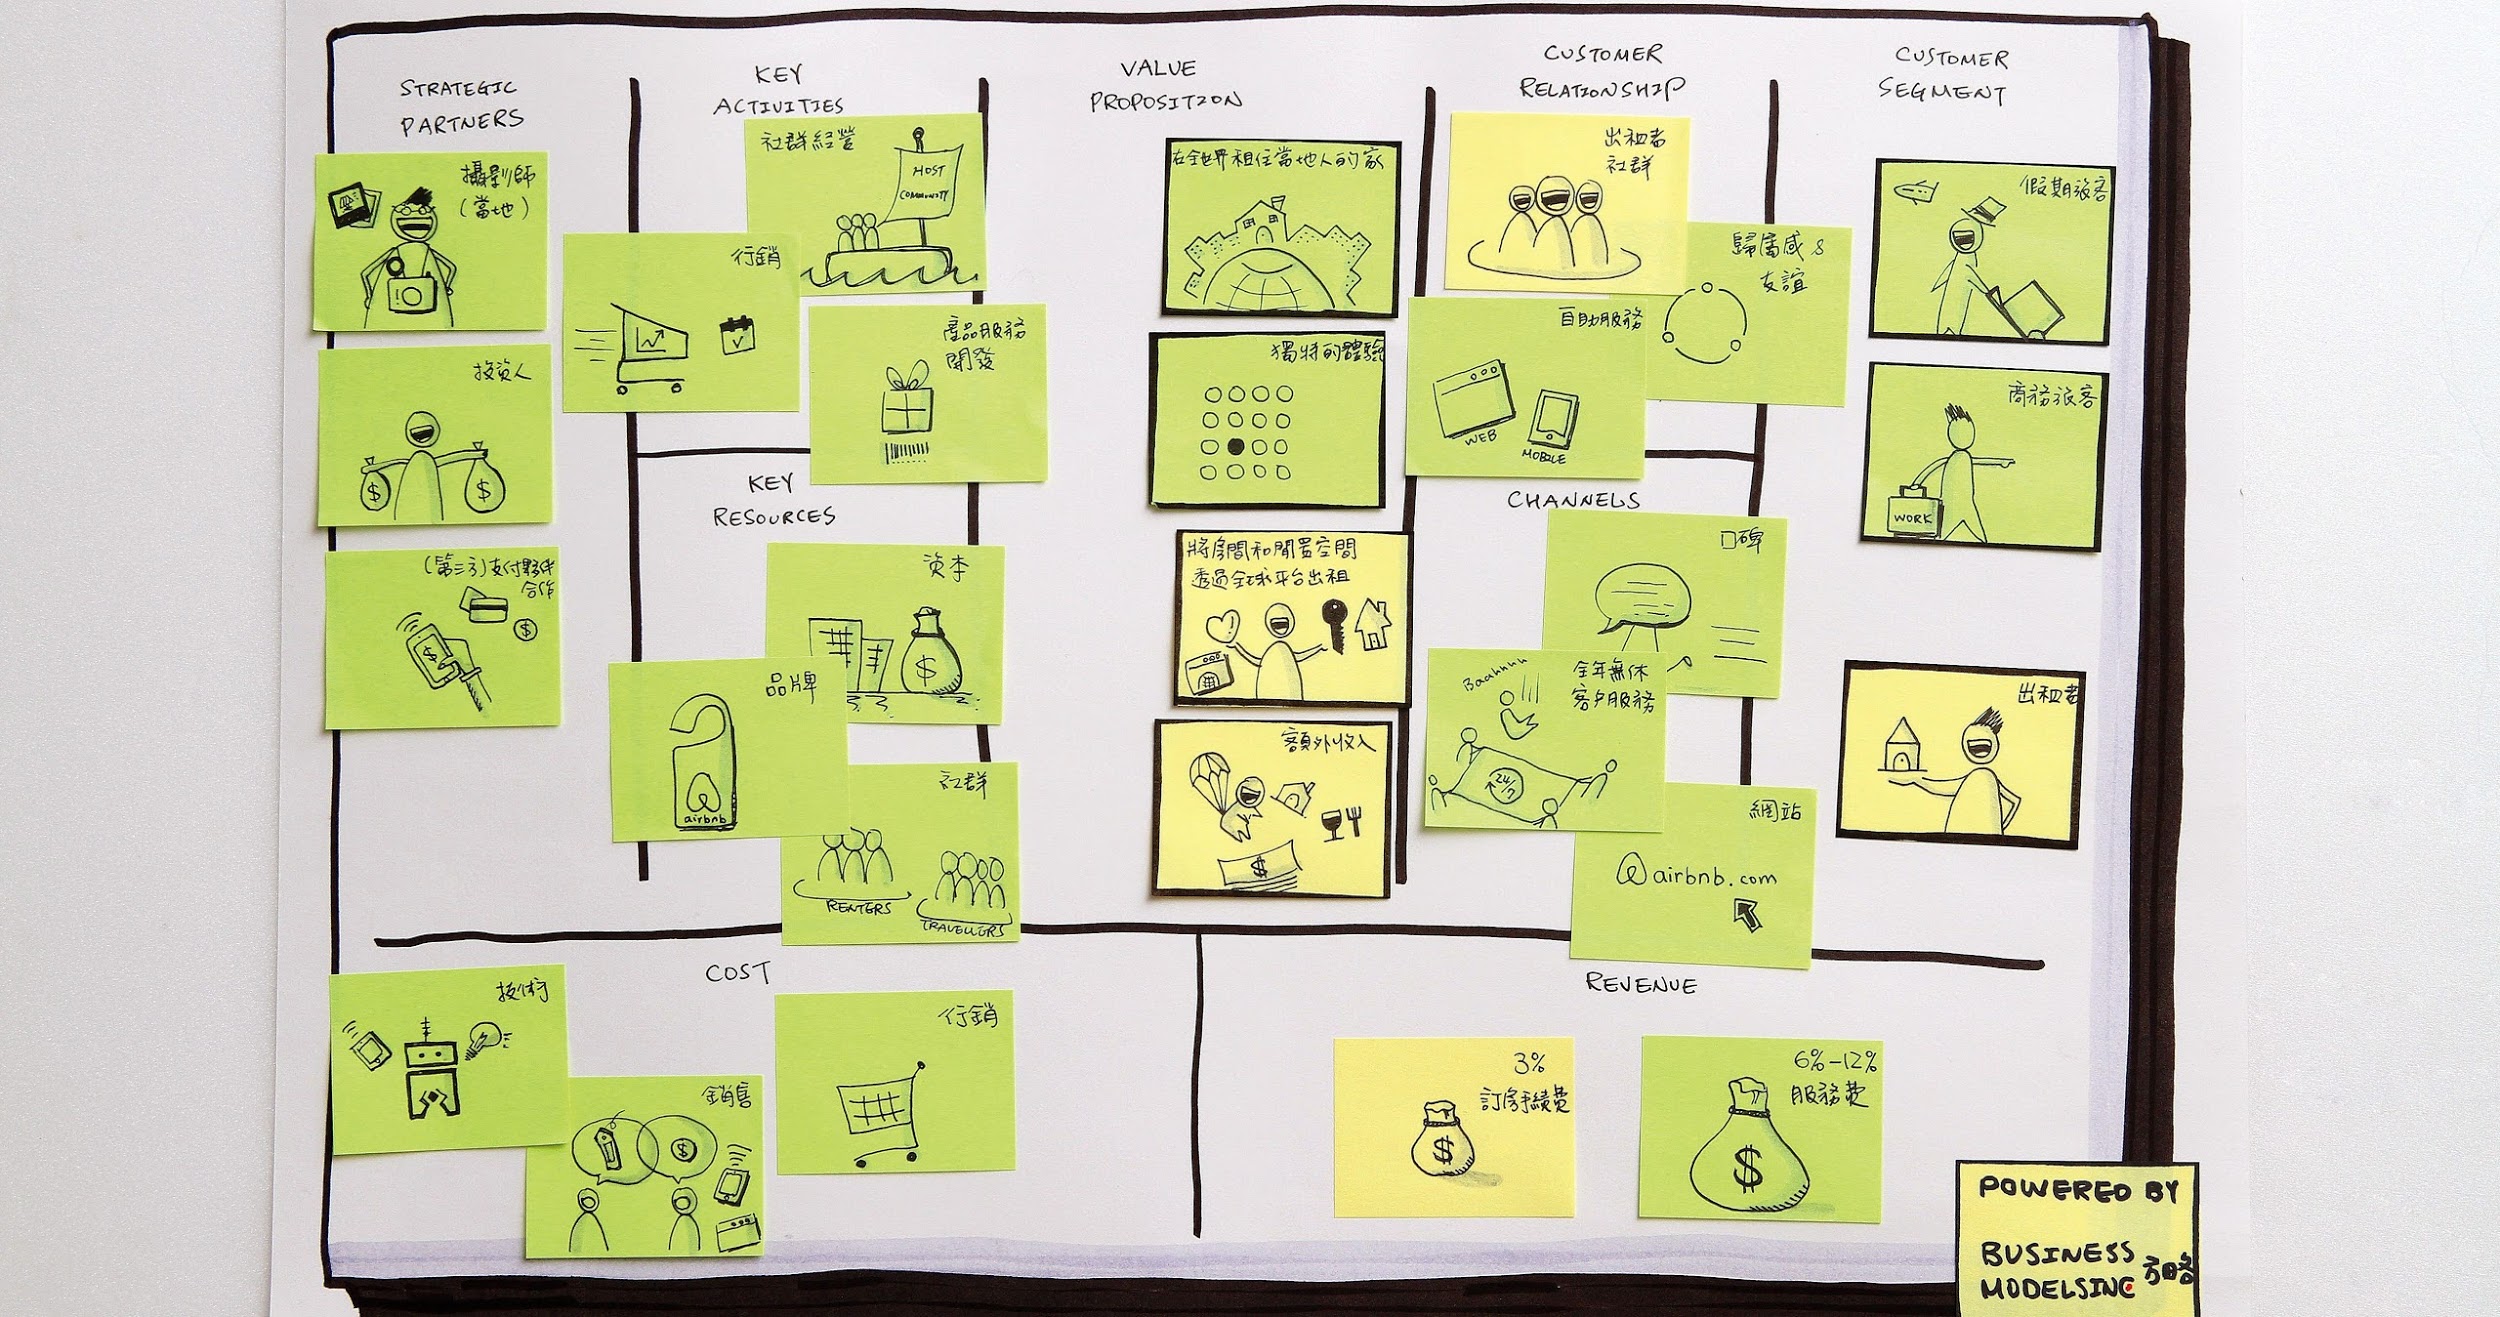 STRATEGIC
PARTNERS
攝影師
(當地)
投資人
(第三方)支付夥伴
合作
$
$
$
$
KEY
ACTIVITIES
社群經營
HOST
COMMUNITY
行銷
產品服務
開發
KEY
RESOURCES
資本
$
品牌
airbnb
社群
RENTERS
TRAVELLERS
VALUE
PROPOSITION
在全世界租住當地人的家
獨特的體驗
將房間和閒置空間
透過全球平台出租
額外收入
$
CUSTOMER
RELATIONSHIP
出租者
社群
歸屬感 &
友誼
自助服務
WEB
MOBILE
CHANNELS
口碑
全年無休
客戶服務
Baahhhh
24/7
網站
airbnb.com
CUSTOMER
SEGMENT
假期旅客
商務旅客
WORK
出租者
COST
技術
銷售
$
行銷
REVENUE
3%
訂房手續費
$
6%-12%
服務費
$
POWERED BY
BUSINESS
MODELSINC
方略